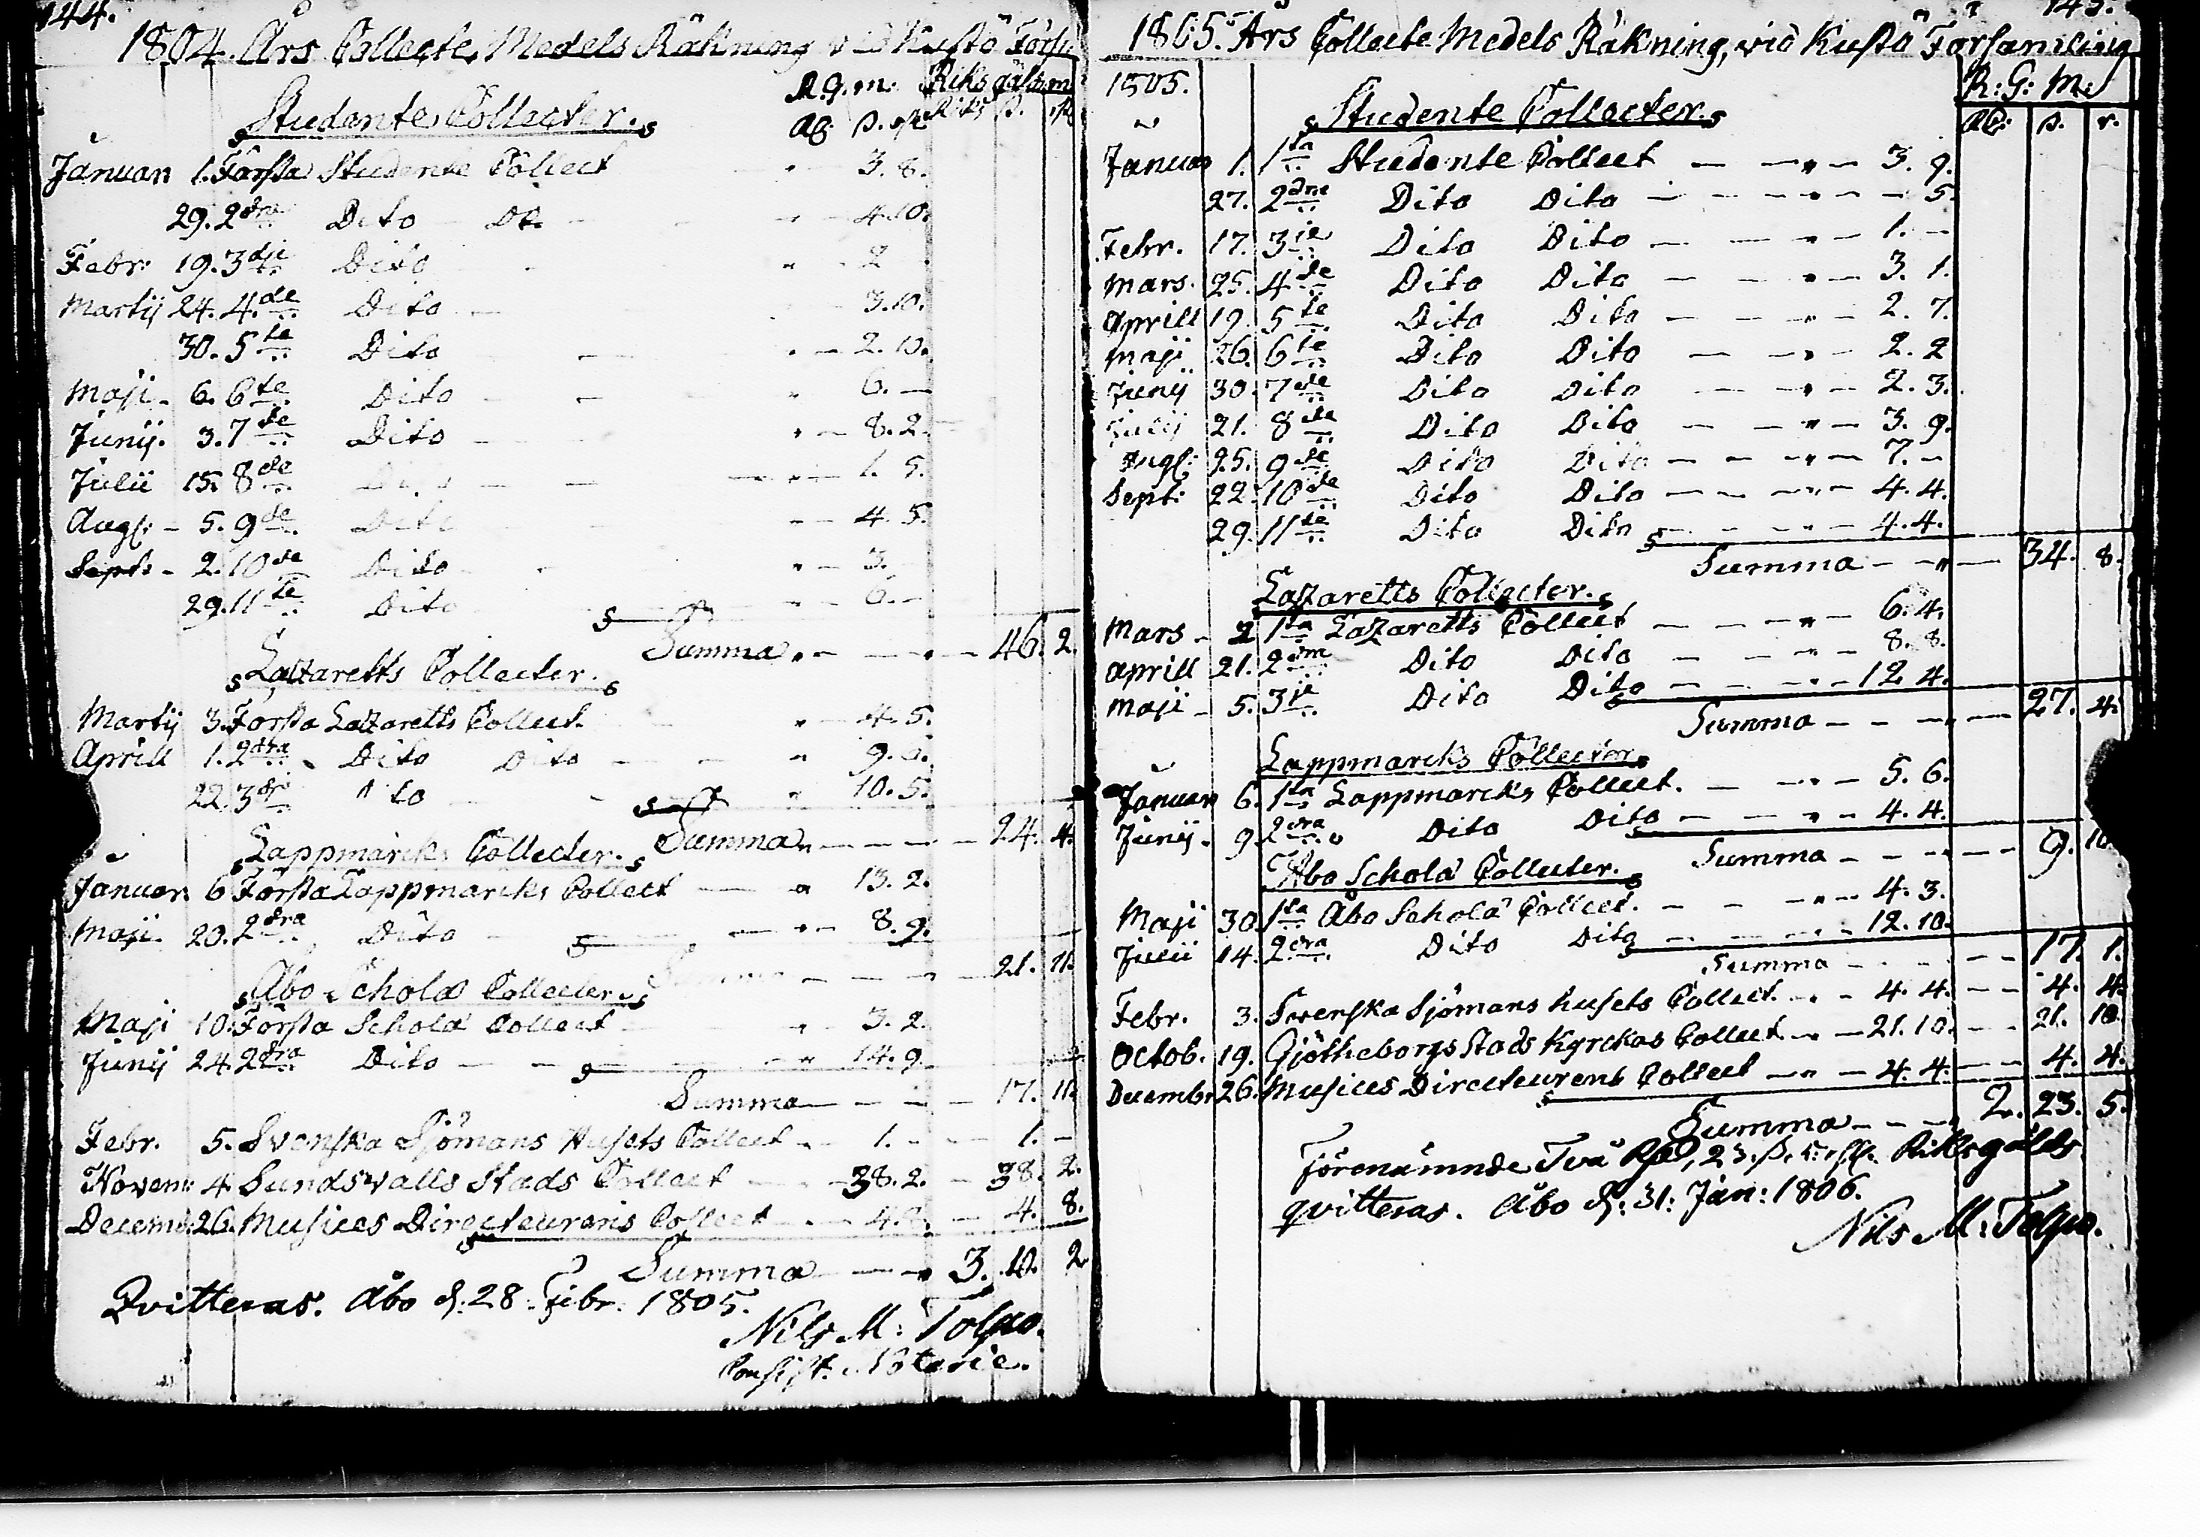 144.
1804. Års Collecte Medels Räkning vid Kustö Förs
R.g.m. Riksgälds m
Studente Collecter.
Januari 1. Första Studente Collect " 3. 8.
29. 2dra Dito Do " 4. 10.
Febr: 19. 3dje Dito " 2
Martij 24. 4de Dito 3. 10.
30. 5te Dito " 2. 10.
Maji 6. 6te Dito " 6. —
Junij. 3. 7de Dito " 8. 2.
Julii 15. 8de Dito " 1. 5.
Augs: 5. 9de Dito " 4. 5.
Septr 2. 10de Dito " 3.
29. 11te Dito " 6. —
Summa 46. 2.
Lazaretts Collecter.
Martij 3. Första Lazaretts Collect. " 4. 5.
Aprill 1. 2dra Dito Dito " 9.
22. 3dje Dito " 10. 5.
Summa 24. 4.
Lappmarcks Collecter.
Januar. 6 Första Lappmarcks Collect " 13. 2.
Maji. 20. 2dra Dito " 8. 9.
Summa 21. 11.
Åbo Schola Collecter
Maji 10. Första Schola Collect " 3. 2.
Junij 24. 2dra Dito " 14. 9.
Summa 17. 11.
Febr. 5. Svenska Sjömans Husets Collect 1. — 1. —
Novem: 4. Sundswalls Stads Collect 38. 2. 38. 2.
Decemb: 26. Musices Directeurens Collect 4. 8. 4. 8.
Summa 3. 10. 2
Qvitteras. Åbo d: 28 Febr. 1805.
Nils M: Tolpo.
Consist. Notarie.
145.
1805. Års Collecte Medels Räkning, vid Kustö Församling
1805. R: G: M:
Studente Collecter.
Januar 1. 1sta Studente Collect " 3. 9.
27. 2dra Dito Dito " 5.
Febr. 17. 3je Dito Dito " 1. —
Mars. 25. 4de Dito Dito " 3. 1.
Aprill 19. 5te Dito Dito " 2. 7.
Maji 26. 6te Dito Dito " 2. 2
Junij 30. 7de Dito Dito " 2. 3.
Julij 21. 8de Dito Dito " 3. 9.
Augs: 25. 9de Dito Dito " 7. —
Sept: 22. 10de Dito Dito " 4. 4.
29. 11te Dito Dito " 4. 4.
Summa " 34. 8.
Lazaretts Collecter.
Mars 2 1sta Lazaretts Collect " 6. 4.
Aprill 21. 2dra Dito Dito " 8. 8.
Maji 5. 3je Dito Dito " 12. 4.
Summa " 27. 4.
Lappmarcks Collecter.
Januari 6. 1sta Lappmarcks Collect. " 5. 6.
Junij. 9. 2dra Dito Dito " 4. 4.
Summa " 9. 10
Åbo Schola Collecter.
Maji 30. 1sta Åbo Schola Collect. " 4. 3.
Julii 14. 2dra Dito Dito " 12. 10.
Summa 17. 1.
Febr. 3. Svenska Sjömans husets Collect. 4. 4. 4. 4.
Octob. 19. Gjötheborgs Stads Kyrckas Collect 21. 10. 21. 10.
Decembr 26. Musices Directeurens Collect 4. 4. 4. 4.
Summa 2. 23. 5.
Förenämnde Två Rd, 23. ß. 5. Riksgälds
qvitteras. Åbo d: 31: Jan: 1806.
Nils M: Tolpo.